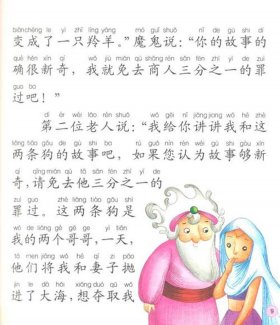 biànchéng le yì zhī líng yáng mó guǐ shuō nǐ de gù shi dí
变成了一只羚羊。”魔鬼说：“你的故事的
què hěn xīn qí wǒ jiù miǎn qù shāng rén sān fēn zhī yī de zuì
确很新奇，我就免去商人三分之一的罪
guo ba
过吧！”
dì èr wèi lǎo rén shuō wǒ gěi nǐ jiǎng jiang wǒ hé zhè
第二位老人说：“我给你讲讲我和这
liǎng tiáo gǒu de gù shi ba rú guǒ nín rèn wéi gù shi gòu xīn
两条狗的故事吧，如果您认为故事够新
qí qǐng miǎn qù tā sān fēn zhī yī de
奇，请免去他三分之一的
zuì guo zhè liǎng tiáo gǒu shì
罪过。这两条狗是
wǒ de liǎng gè gē ge yì tiān
我的两个哥哥，一天，
tā men jiāng wǒ hé qī zi pāo
他们将我和妻子抛
jìn le dà hǎi xiǎng duó qǔ wǒ
进了大海，想夺取我
9